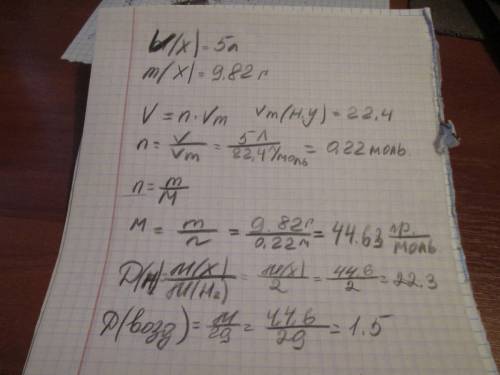 V(x) = 5л
m(x) = 9.82 г
V = n · Vm   Vm(н.у) = 22.4
n = V/Vm = 5 л/22.4 л/моль = 0,22 моль
n = m/M
M = m/n = 9.82 г/0.22 м = 44.63 гр./моль
D(H) = M(X)/M(H₂) = M(x)/2 = 44.6/2 = 22.3
D(возд) = M/29 = 44.6/29 = 1.5